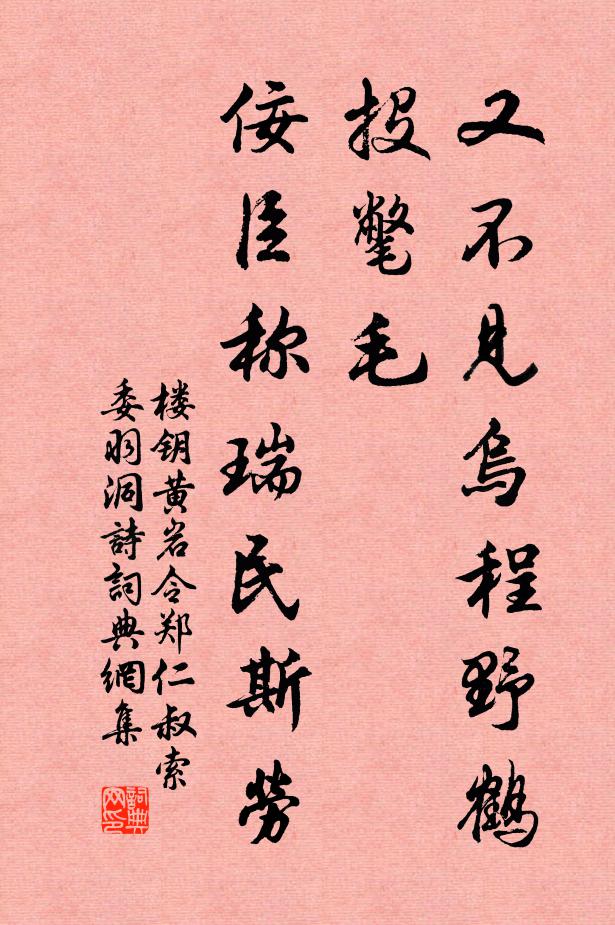 又不见乌程野鹤
投氅毛
佞臣称瑞民斯劳
楼钥黄岩令郑仁叔索
委羽洞詩詞典網集
詞典
网印